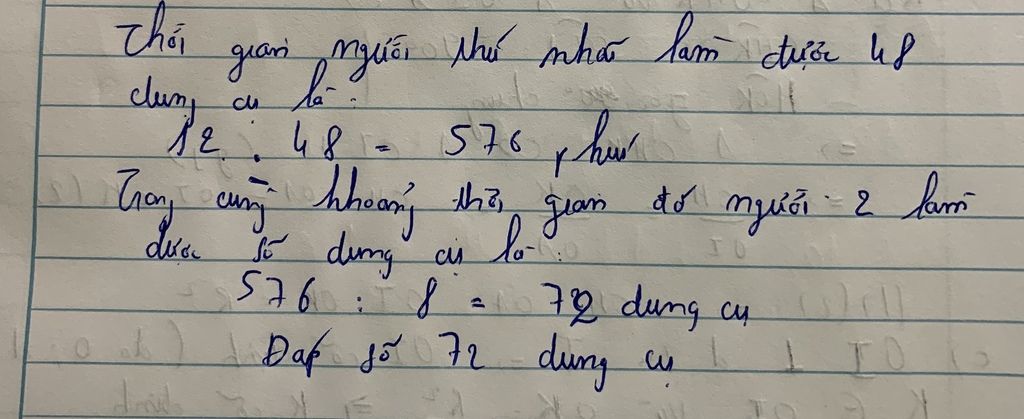 Thời gian người thứ nhất làm được 48
dụng cụ là:
12 . 48 = 576 phút
Trong cùng khoảng thời gian đó người 2 làm
được số dụng cụ là:
576 : 8 = 72 dụng cụ
Đáp số 72 dụng cụ